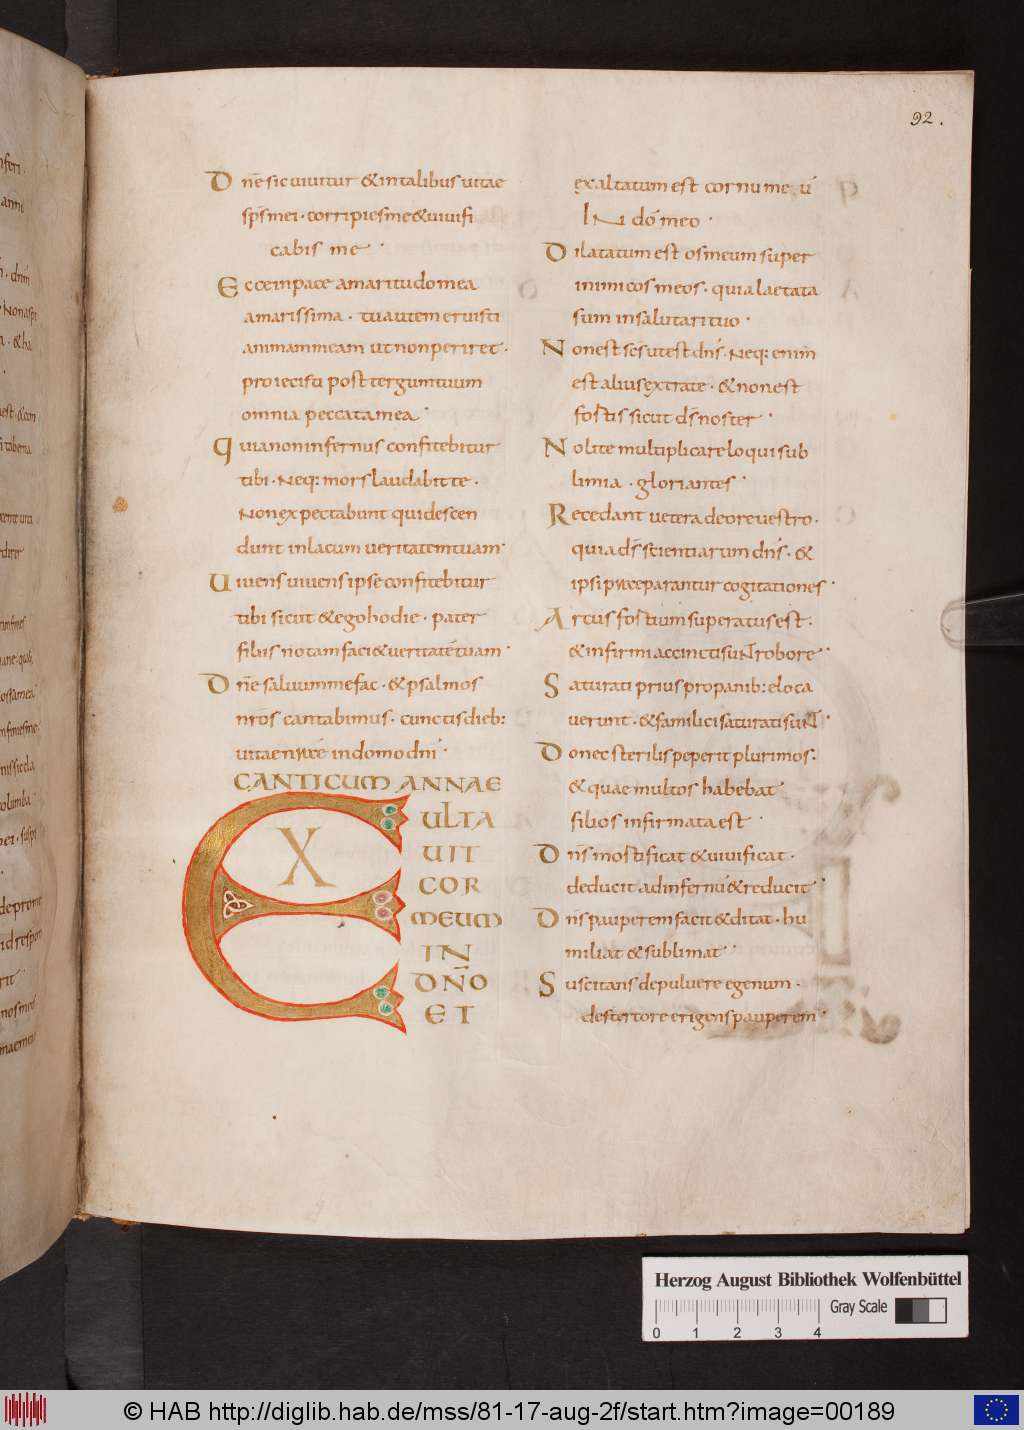 92.
Dne sic uiuitur & in talibus uitae
sps mei · corripies me & uiuifi
cabis me ·
Ecce in pace amaritudo mea
amarissima · tu autem eruisti
animam meam ut non periret ·
proiecisti post tergum tuum
omnia peccata mea ·
Quia non infernus confitebitur
tibi · Neq: mors laudabit te ·
Non expectabunt qui descen
dunt in lacum ueritatem tuam ·
Uiuens uiuens ipse confitebitur
tibi sicut & ego hodie · pater
filiis notam faci& ueritatē tuam ·
Dne saluum me fac · & psalmos
nros cantabimus · cunctis dieb:
uitae nrae in domo dni ·
CANTICUM ANNAE
EXULTA
UIT
COR
MEUM
IN
DÑO
ET
exaltatum est cornu meū
IN dō meo ·
Dilatatum est os meum super
inimicos meos · quia laetata
sum in salutari tuo ·
Non est scs ut est dns · Neq: enim
est alius extra te · & non est
fortis sicut ds noster ·
Nolite multiplicare loqui sub
limia · gloriantes ·
Recedant uetera de ore uestro ·
quia ds scientiarum dns · &
ipsi praeparantur cogitationes ·
Arcus fortium superatus est ·
& infirmi accincti suNT robore ·
Saturati prius pro panib: eloca
uerunt · & familici saturati suNT ·
Donec sterilis peperit plurimos ·
& quae multos habebat
filios infirmata est ·
Dns mortificat & uiuificat ·
deducit ad infernū & reducit ·
Dns pauperem facit & ditat · hu
miliat & subleimat ·
Suscitans de puluere egenum ·
de stercore erigens pauperem ·
Herzog August Bibliothek Wolfenbüttel
Gray Scale
0 1 2 3 4
© HAB http://diglib.hab.de/mss/81-17-aug-2f/start.htm?image=00189